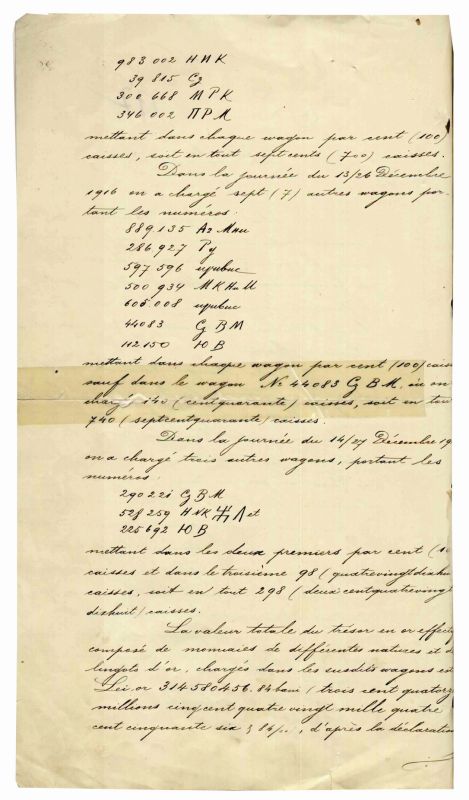 983 002 НПК
39 815 Сз
300 668 МРК
346 002 ПРМ
mettant dans chaque wagon par cent (100)
caisses, soit en tout sept cents (700) caisses.
Dans la journée du 13/26 Décembre
1916 on a chargé sept (7) autres wagons por-
tant les numéros:
889 135 Аз
286 927 Ру
597 596
500 934
608 008
44083 Сз В М
112 150 Ю В
mettant dans chaque wagon par cent (100) cais
sauf dans le wagon № 44083 Сз В М. où on
140 (centquarante) caisses, soit en tou
740 (septcentquarante) caisses.
Dans la journée du 14/27 Décembre 19
on a chargé trois autres wagons, portant les
numéros:
290 221 Сз В М
528 259 НПК ЖЛ et
225 692 Ю В
mettant dans les deux premiers par cent (10
caisses et dans le troisième 98 (quatrevingtdixhu
caisses, soit en tout 298 (deux centquatrevingt
dixhuit) caisses.
La valeur totale du trésor en or effecti
composé de monnaies de différentes natures et d
lingots d'or, chargés dans les susdits wagons est
Lei or 314 580 456. 84 bani (trois cent quatorz
millions cinq cent quatre vingt mille quatre
cent cinquante six , d'après la déclaration